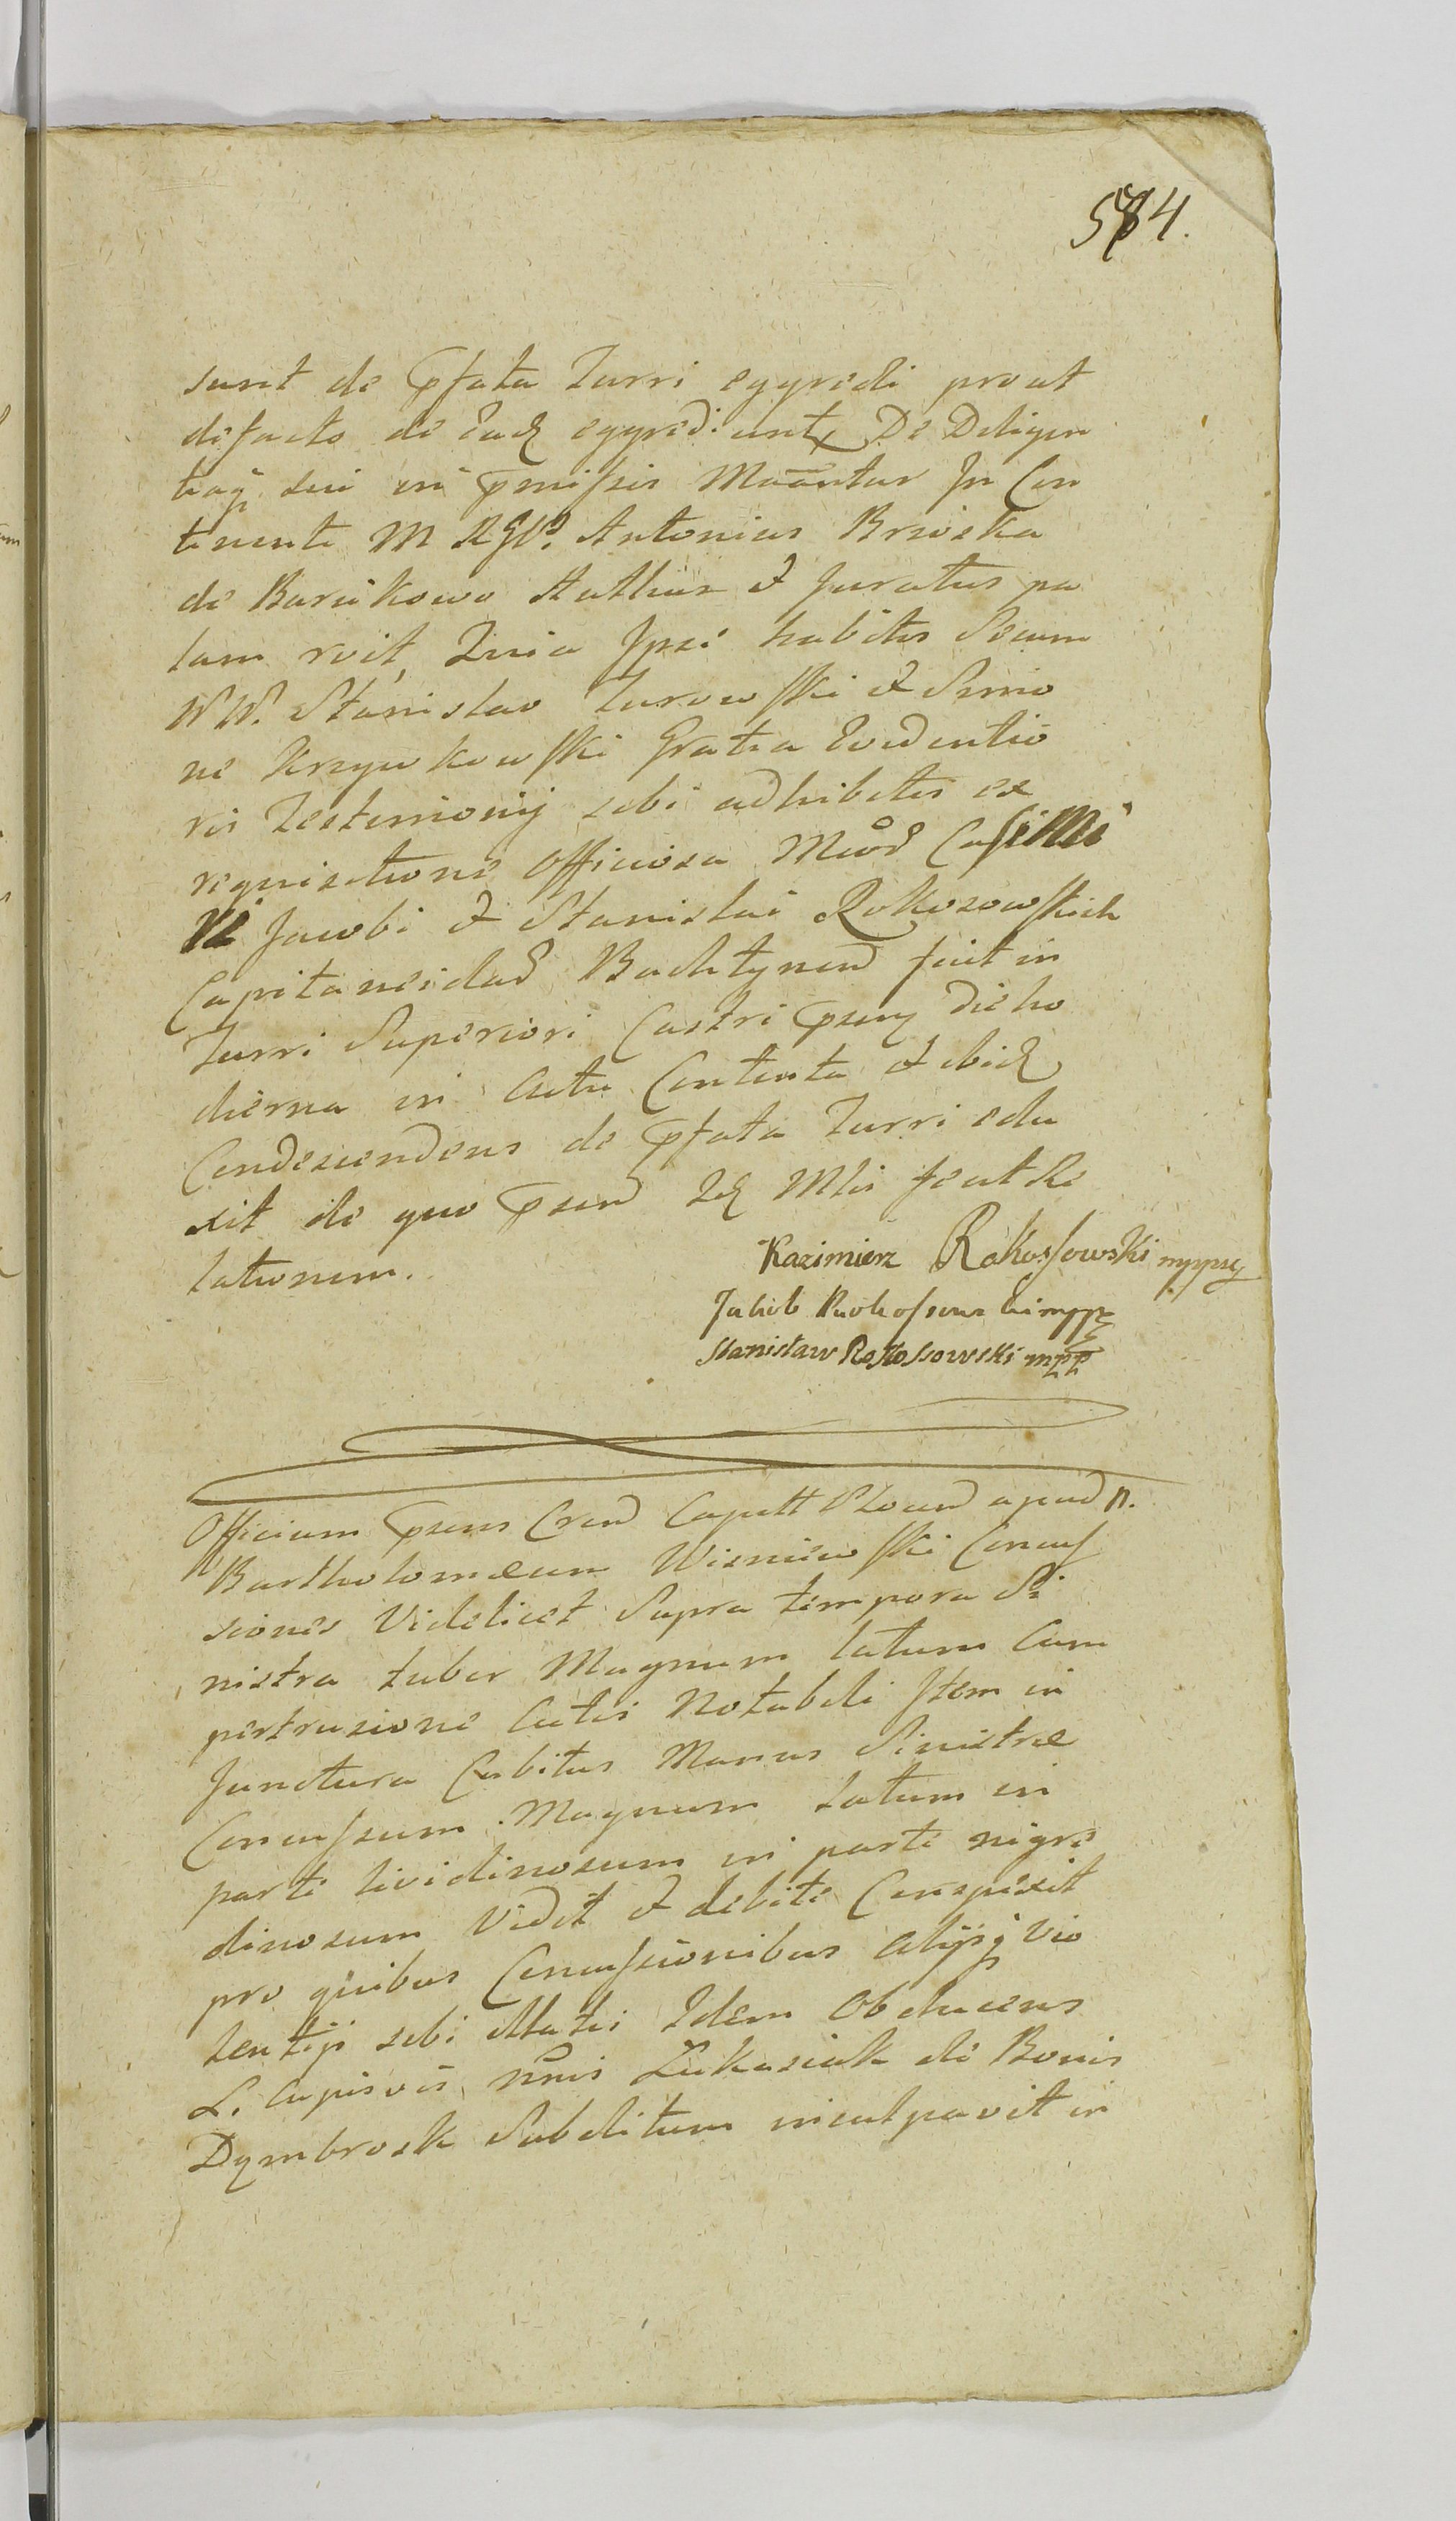 584.
sunt de pfata Turri egyredi prout
defacto de Eadz egyrediuntx De Diligen
tiaq sui in pmissis Maantur In Con
tinenti M RGlD. Antonius Brzoska
de Barcikowo Authus & Juratus pa
lam rvit, Quia Ipse habitis Secum
NN. Stanislao Turowski & Simio
ne Krzywkowski Gratia Evidentio
ris Testimonij sibi adhibitis ex
requisitione officiosa Mcod Casimi
ri Jacobi & Stanislai Rokosowskich
Capitaneidad Bachtynen fuit in
Turri Superiori Castri psentz die ho
dierna in Actu Contenta & ibidz
Condescendens de pfata Turri edu
xit de quo psend Idz Mtis fecit Re
lationem.
Kazimierz Rokossowski mppry
Jakob Rokossowski mpp
Stanisław Rokossowski mpp
Officium psens Crend Capitt Plocend apud n.
Bartholomæum Wisniewski Concus
siones Videlicet Supra tempora Si
nistra tuber Magnum latum Cum
pertrusione Cutis Notabili Item in
Junctura Cubitus Manus Sinistræ
Concussum Magnum Latum in
parte lividinosum in parte nigre
dinosum Vidit & debite Conspexit
pro quibus Concussionibus Alijsq Vio
lentijs sibi illatis Idem Obducens
L. Cujsvis nnis Lukasiak de Bonis
Dymbrosk Subditum inculpavit in